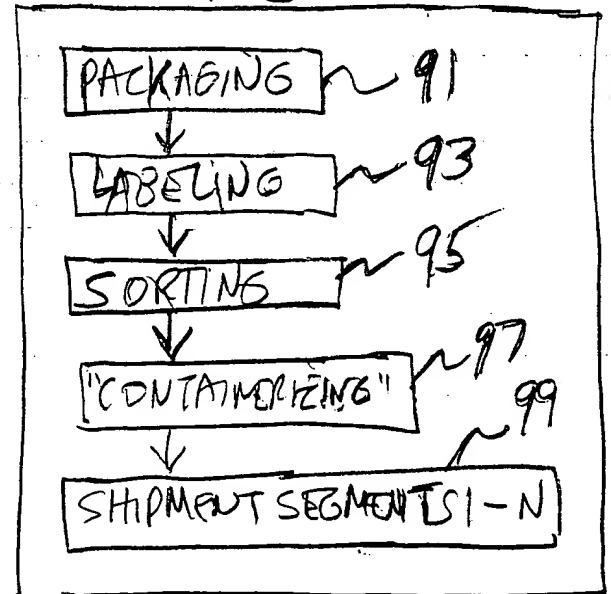 PACKAGING 91
LABELING 93
SORTING 95
"CONTAINERIZING" 97
99
SHIPMENT SEGMENTS 1-N